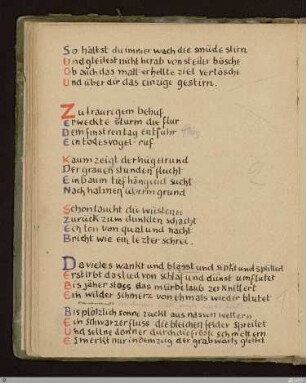 So hältst du immer wach die müde stirn
Und gleitest nicht herab von steiler bösche
Ob auch das matt-erhellte ziel verlösche
Und über dir das einzige gestirn.
Zu traurigem behuf
Erweckte sturm die flur
Dem finstren tag entfuhr
Ein todesvogel-ruf
Kaum zeigt der hügel rund
Der grauen stunden flucht
Ein baum tief hängend sucht
Nach halmen überm grund
Schon taucht die
Zurück zum dunklen schacht
Ein ton von qual und nacht
Bricht wie ein letzter schrei.
Da vieles wankt und blasst und sinkt und splittert
Erstirbt das lied von schlaf und dunst umflutet
Bis jäher stoss das mürbe laub zerknittert
Ein wilder schmerz von ehmals wieder blutet
Bis plötzlich sonne zuckt aus nassen wettern
Ein schwarzer fluss die bleichen felder spreitet
Und seltne donner durch die fröste schmettern
Es merkt nur in dem zug der grabwärts gleitet
2